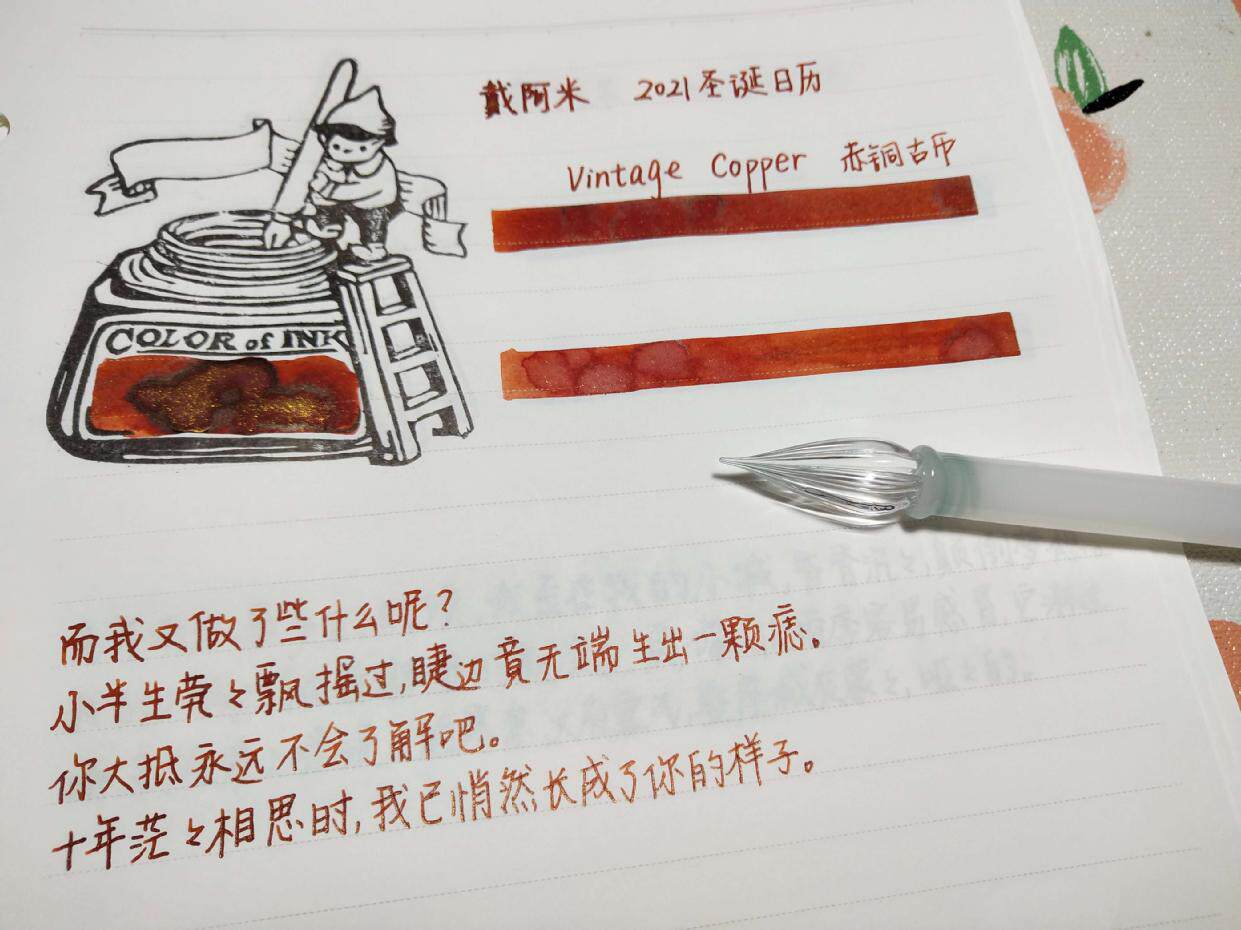 戴阿米 2021圣诞日历
Vintage Copper 赤铜古币
COLOR of INK
而我又做了些什么呢？
小半生茕々飘摇过,睫边竟无端生出一颗痣。
你大抵永远不会了解吧。
十年茫々相思时,我已悄然长成了你的样子。